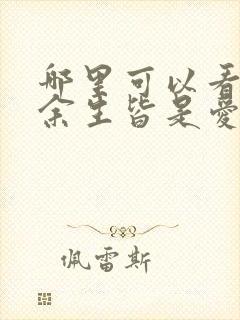 哪里可以看
余生皆是愛
佩雷斯